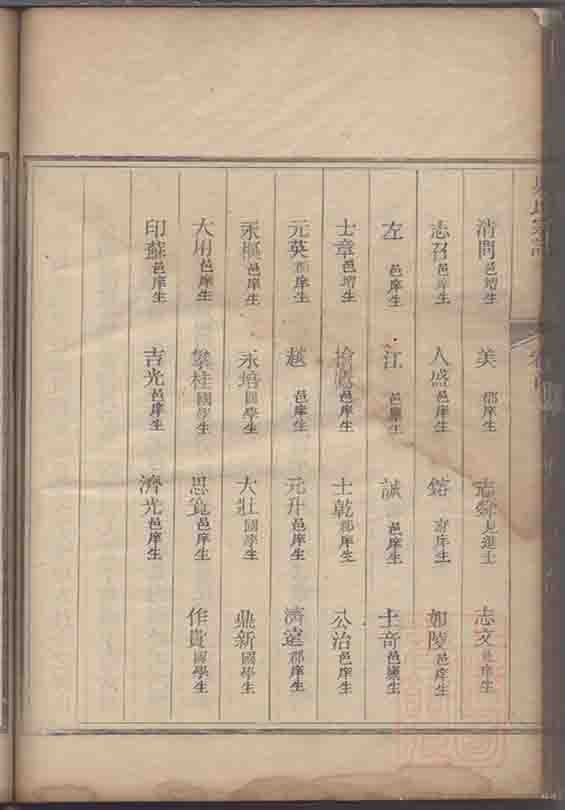 清問邑增生 美郡庠生 志舜見進士 志文邑庠生
志召邑庠生 人盛邑庠生 庠生 如陵邑庠生
左邑庠生 江邑庠生 誠邑庠生 士奇邑廪生
士章邑增生 士乾郡庠生 公治邑庠生
元英郡庠生 越邑庠生 元升邑庠生 濟遠郡庠生
永樞邑庠生 永培國學生 大壯國學生 鼎新國學生
大用邑庠生 攀桂國學生 思寬邑庠生 作賓國學生
印蘇邑庠生 吉光邑庠生 濟光邑庠生